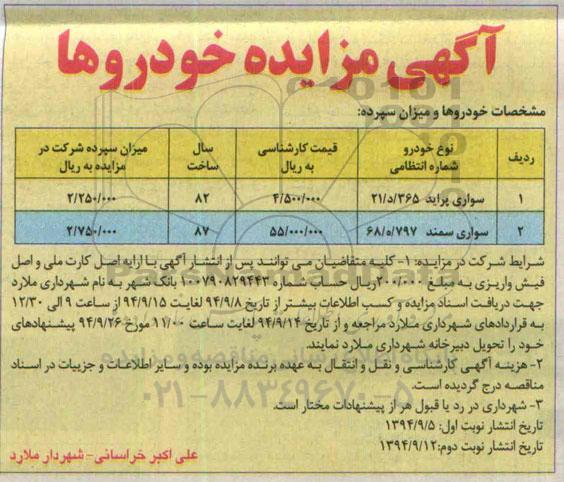 آگهی مزایده خودروها
مشخصات خودروها و میزان سپرده:
ردیف نوع خودرو شماره انتظامی قیمت کارشناسی به ریال سال ساخت میزان سپرده شرکت در مزایده به ریال
۱ سواری پراید ۳۶۵/د/۲۱ ۴/۵۰۰/۰۰۰ ۸۲ ۲/۲۵۰/۰۰۰
۲ سواری سمند ۶۸/ه/۷۹۷ ۵۵/۰۰۰/۰۰۰ ۸۷ ۲/۷۵۰/۰۰۰
شرایط شرکت در مزایده: ۱- کلیه متقاضیان می توانند پس از انتشار آگهی با ارایه اصل کارت ملی و اصل
فیش واریزی به مبلغ ۲۰۰/۰۰۰ریال حساب شماره ۱۰۰۷۹۰۸۲۹۴۴۳ بانک شهر به نام شهرداری ملارد
جهت دریافت اسناد مزایده و کسب اطلاعات بیشتر از تاریخ ۹۴/۹/۸ لغایت ۹۴/۹/۱۵ از ساعت ۹ الی ۱۲/۳۰
به قراردادهای شهرداری ملارد مراجعه و از تاریخ ۹۴/۹/۱۴ لغایت ساعت ۱۱/۰۰ مورخ ۹۴/۹/۲۶ پیشنهادهای
خود را تحویل دبیرخانه شهرداری ملارد نمایند.
۲- هزینه آگهی کارشناسی و نقل و انتقال به عهده برنده مزایده بوده و سایر اطلاعات و جزییات در اسناد
مناقصه درج گردیده است.
۳- شهرداری در رد یا قبول هر از پیشنهادات مختار است.
تاریخ انتشار نوبت اول: ۱۳۹۴/۹/۵
تاریخ انتشار نوبت دوم:۱۳۹۴/۹/۱۲
علی اکبر خراسانی- شهردار ملارد
۰۲۱-۸۸۳۴۹۶۷۰-۵